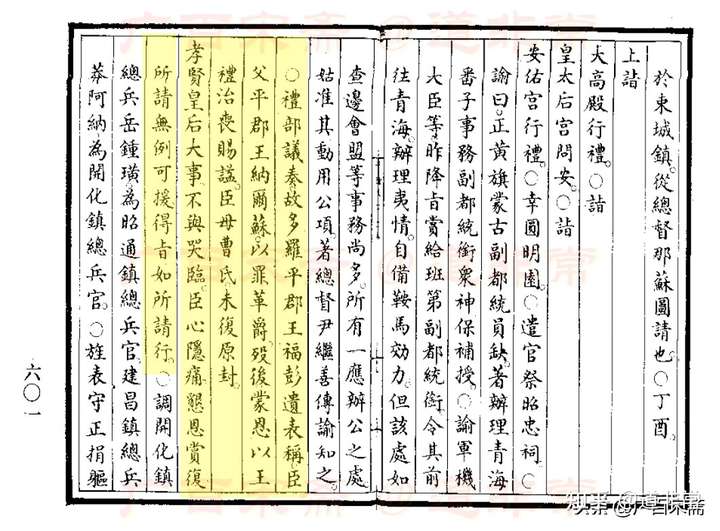 於東城鎮。從總督那蘇圖請也。○丁酉。
上詣
大高殿行禮。○詣
皇太后宮問安。○詣
安佑宮行禮。○幸圓明園。○遣官祭昭忠祠。○
諭曰。正黃旗蒙古副都統員缺。著辦理青海
番子事務副都統銜眾神保補授。○諭軍機
大臣等。昨降旨賞給班第副都統銜。令其前
往青海。辦理夷情。自備鞍馬効力。但該處如
查邊會盟等事務尚多。所有一應辦公之處。
姑准其動用公項。著總督尹繼善傳諭知之。
○禮部議奏。故多羅平郡王福彭遺表稱。臣
父平郡王納爾蘇。以罪革爵。歿後蒙恩以王
禮治喪賜諡。臣母曹氏未復原封。
孝賢皇后大事。不與哭臨。臣心隱痛。懇恩賞復
所請無例可援。得旨如所請行。○調開化鎮
總兵岳鍾璜。為昭通鎮總兵官。建昌鎮總兵
莽阿納為開化鎮總兵官。○旌表守正捐軀
六〇一
知乎 @道非斋